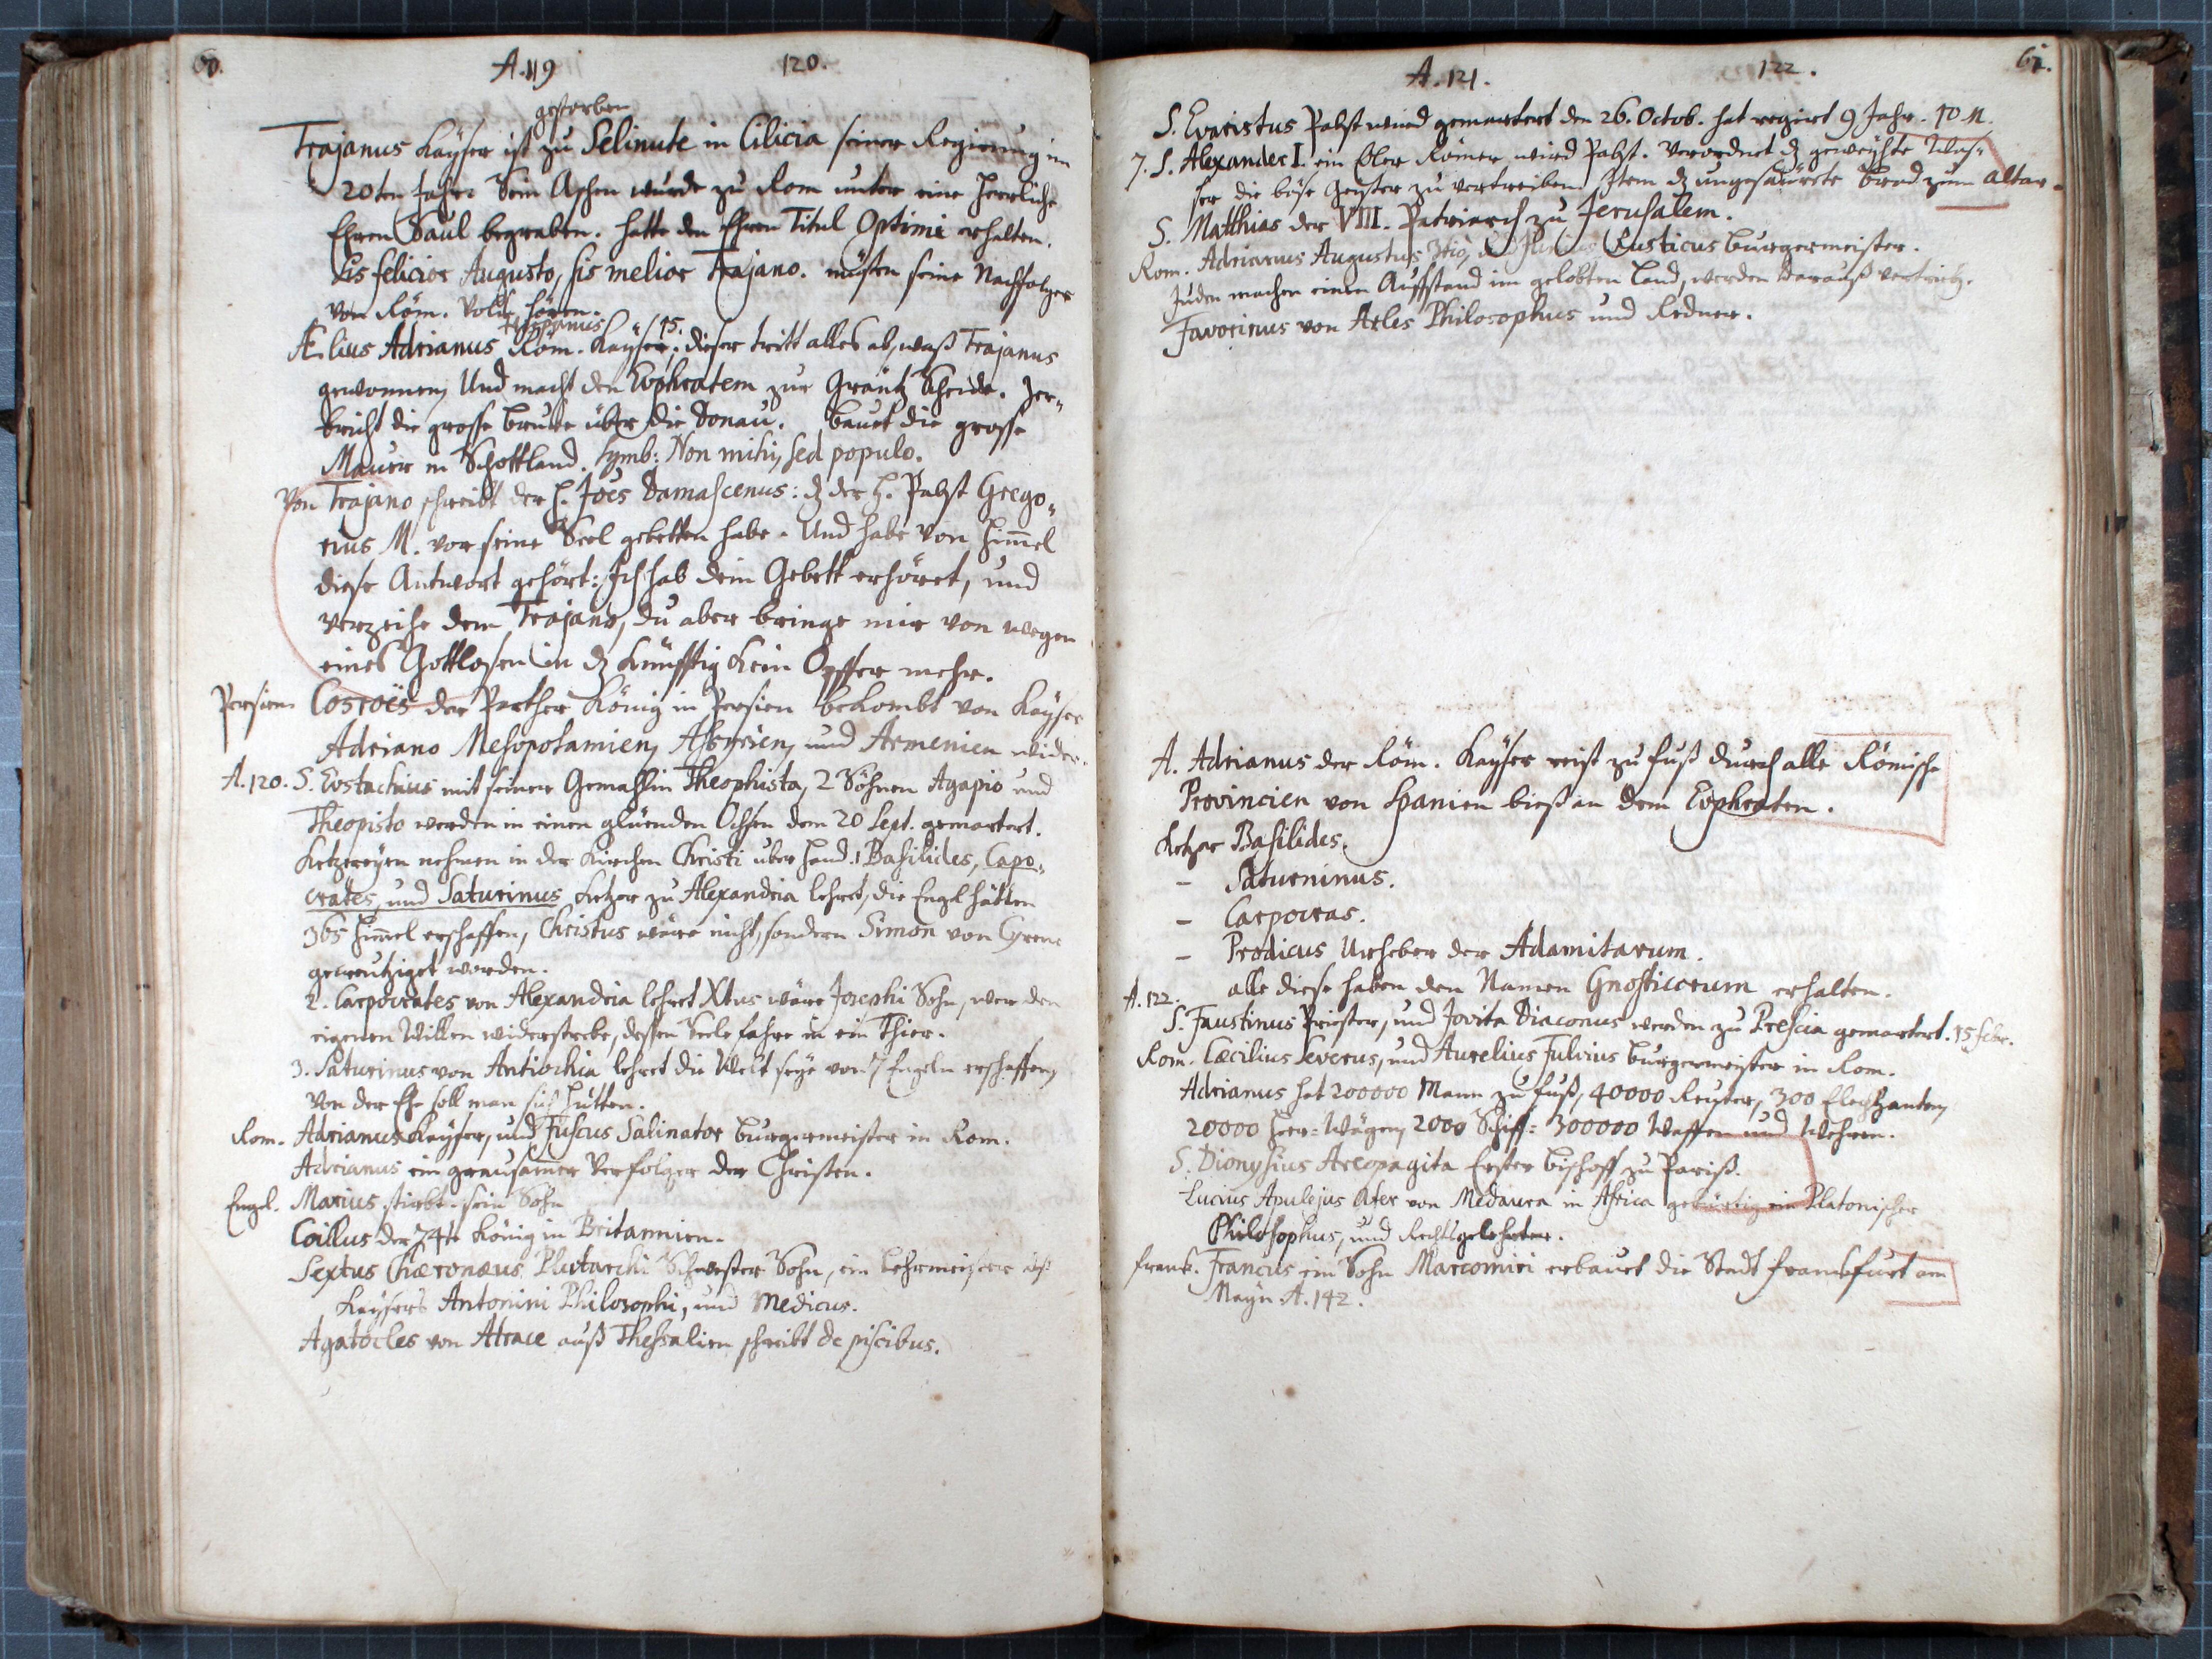 60. A. 119 120.
gestorben
Trajanus Kayser ist zu Selinute in Cilicia seiner Regierung im
20ten Jahr. Sein Aschen wurde zu Rom unter eine Herrliche
Ehren Saul begraben. hatte den Ehren Titul Optimi erhalten.
Sis felicior Augusto, sis melior Trajano. müsten seine Nachfolger
von Röm. Volck hören.
Hispanus
Ælius Adrianus Röm. Kayser 15. dieser tritt alles ab, waß Trajanus
gewonnen, Und macht den Euphratem zur Gräntz Scheide. Zer-
bricht die grosse Brucke über die Donau. bauet die grosse
Maur in Schottland. Symb: Non mihi, sed populo.
Von Trajano schreibt der H. Joes Damascenus: dz der H. Pabst Grego-
rius M. vor seine Seel gebetten habe. Und habe von Himmel
diese Antwort gehört: Ich hab dein Gebett erhöret, und
verzeihe dem Trajano, du aber bringe mir von wegen
eines Gottlosen in dz künfftig kein Opffer mehr.
Persien Cosroës der Parther König in Persien bekombt von Kayser
Adriano Mesopotamien, Assyrien, und Armenien wider.
A. 120. S. Eustachius mit seiner Gemahlin Theophista, 2 Söhnen Agapio und
Theopisto werden in einen gluenden Ochsen dem 20 Sept. gemartert.
Ketzereyen nehmen in der Kirchen Christi uber Hand. 1 Basilides, Capo-
crates, und Saturinus Ketzer zu Alexandria lehret, die Engel hätten
365 Himel erschaffen, Christus wäre nicht, sondern Simon von Cyrene
gecreutziget worden.
2. Carpocrates von Alexandria lehret Xtus wäre Josephi Sohn, wer den
eigenen Willen widerstrebe, dessen Seele fahre in ein Thier.
3. Saturinus von Antiochia lehret die Welt seye von 7 Engeln erschaffen,
Von der Ehe soll man sich hütten.
Rom. Adrianus Kayser, und Fuscus Salinator Burgermeister in Rom.
Adrianus ein grausamer Verfolger der Christen.
Engel. Marius stirbt. sein Sohn
Coillus der 74te König in Britannien.
Sextus Chæronæus Plutarchi Schwester Sohn, ein Lehrmeister deß
Kaysers Antonini Philosophi, und Medicus.
Agatocles von Atrace auß Thessalien schreibt de piscibus.
A. 121. 122. 61.
S. Evaristus Pabst wird gemartert den 26. Octob. hat regirt 9 Jahr. 10 M.
7. S. Alexander I. ein Römer wird Pabst. Verordnet dz geweyhte Was-
ser die böse Geister zu vertreiben. Item dz ungesäurte brod zum Altar.
S. Matthias der VIII. Patriarch zu Jerusalem.
Rom. Adrianus Augustus 3tio, Rusticus Burgermeister.
Juden machen einen Auffstand im gelobten Land, werden darauß vertrieb.
Favorinus von Arles Philosophus und Redner.
A. Adrianus der Röm. Kayser reist zu fuß durch alle Römische
Provincien von Spanien bieß an dem Euphraten.
Ketzer Basilides.
- Saturninus.
- Carpocras.
- Prodicus Urheber der Adamitarum.
alle diese haben den Namen Gnosticorum erhalten.
A. 122.
S. Faustinus Priester, und Jovita Diaconus werden zu Prescia gemartert. 15 Febr.
Rom. Cæcilius Severus, und Aurelius Fulvius Burgermeister in Rom.
Adrianus hat 200000 Mann zu fuß, 40000 Reuter, 300 Elephanten,
20000 Heer-Wägen, 2000 Schiff: 300000 Waffen und Wehren.
S. Dionysius Areopagita Erster Bischoff zu Pariß.
Lucius Apulejus Afer von Medaura in Africa gebürtig ein Platonischer
Philosophus, und Rechtsgelehrter.
Frank. Francus ein Sohn Marcomiri erbauet die Stadt Franckfurt am
Mayn. A. 142.